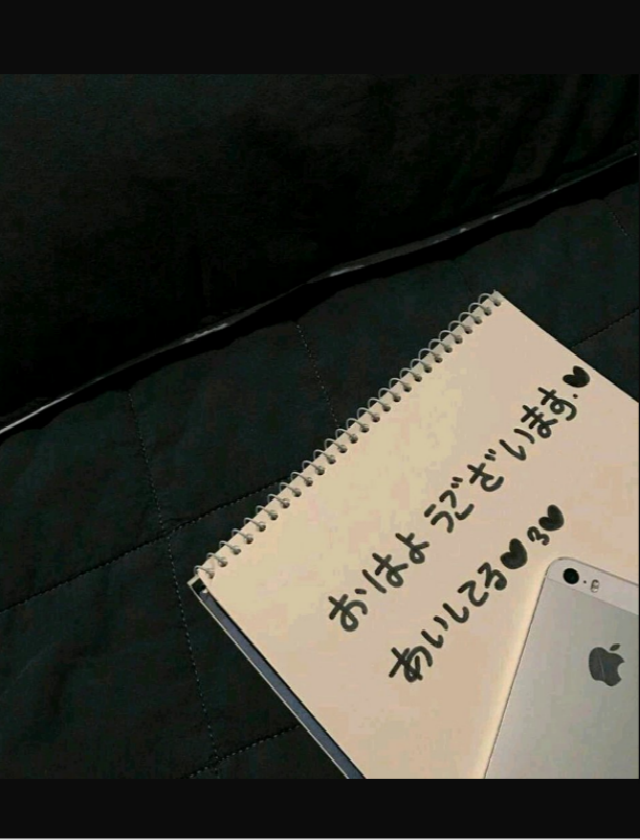 おはようございます.♥
あいしてる♥3♥